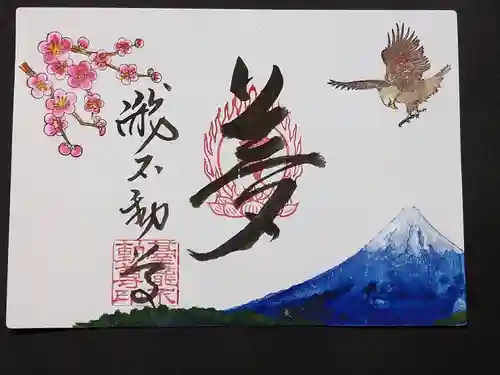 夢
瀧不動尊